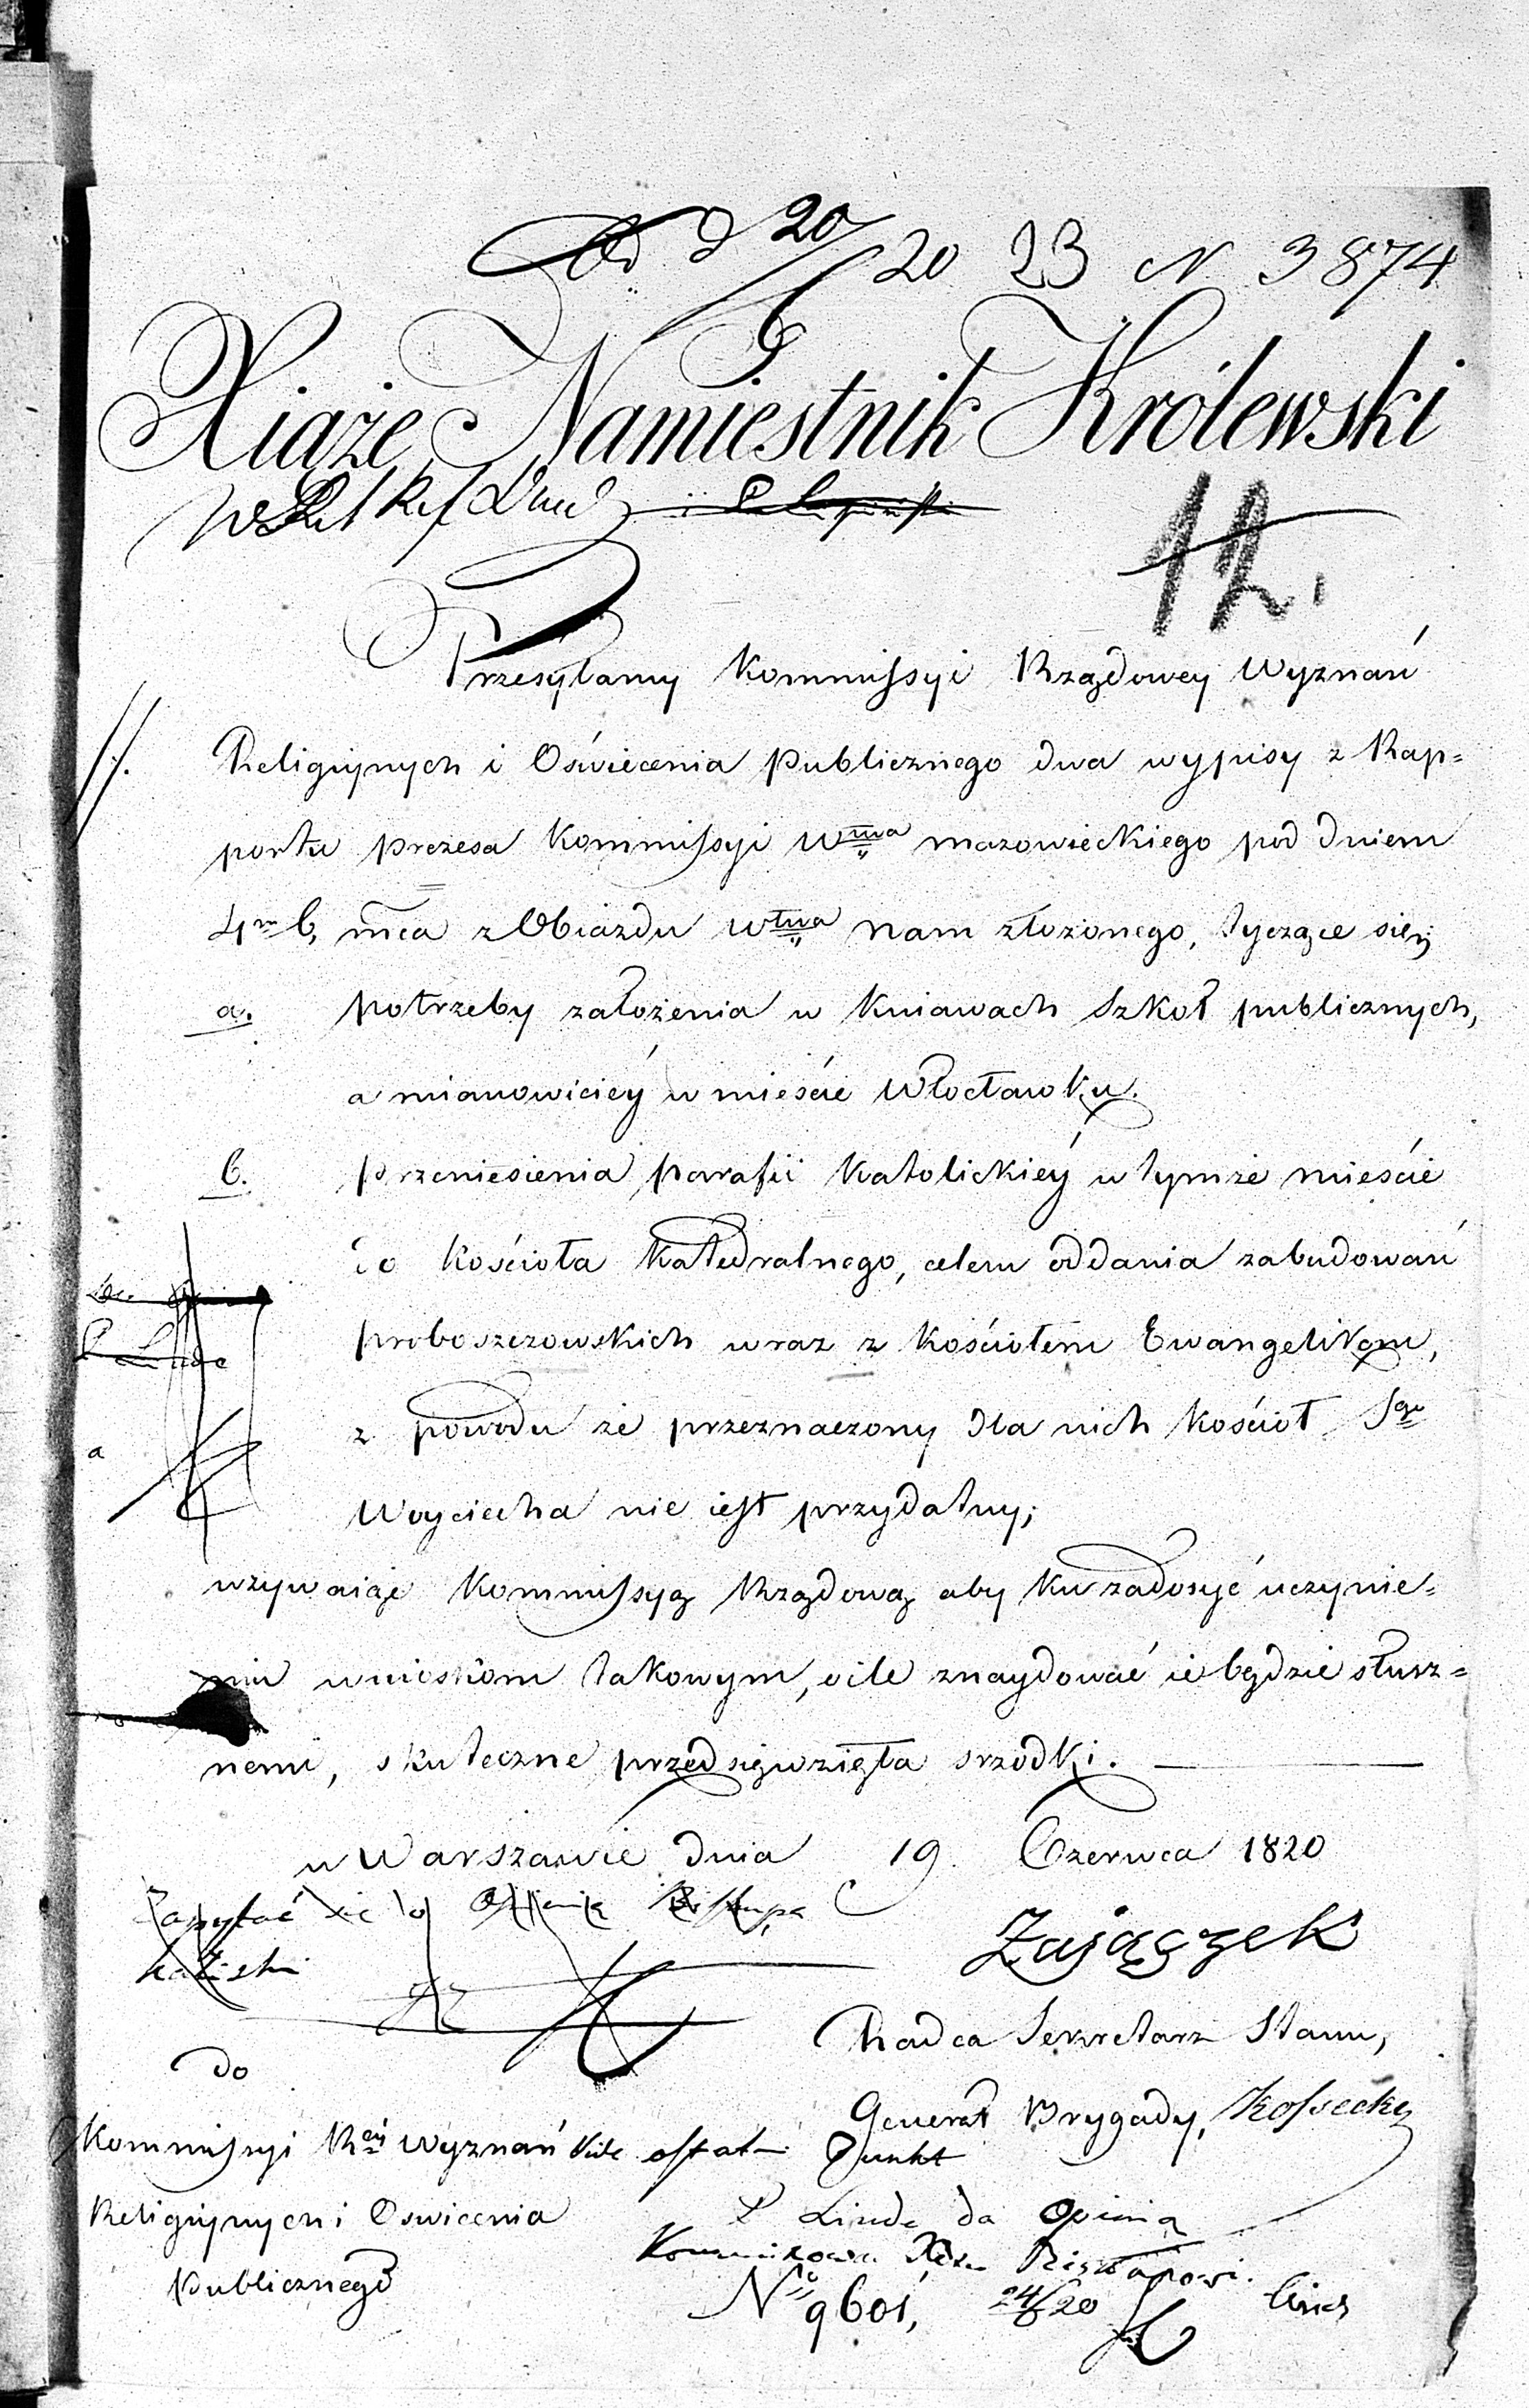 Od d 20/6 20 23 N 3874
Xiąże Namiestnik Królewski
12.
Przesyłamy Kommissyi Rządowey Wyznań
Religiynych i Oświecenia Publicznego dwa wypisy z Rap=
portu Prezesa Kommissyi Wtwa mazowieckiego pod dniem
4m b, mca z Obiazdu Wtwa nam złożonego, tyczące się;
a. potrzeby założenia w Kuiawach Szkoł publicznych,
a mianowiciéy w mieście Włocławku.
b. przeniesienia parafii Katolickiéy w tymże mieście
do Kościoła Katedralnego, celem oddania zabudowań
proboszczowskich wraz z Kościołem Ewangelikom,
z powodu że przeznaczony dla nich Kościoł Sgo
Woyciecha nie iest przydatny;
wzywaiąc Kommissyą Rządową aby ku zadosyć uczynie=
niu wnioskom takowym, o ile znaydować ie będzie słusz=
nemi, skuteczne przedsięwzięła srzodki.
w Warszawie dnia 19 Czerwca 1820
Zapytać się o Opinią Biskupa
Kaliski
Zajączek
Radca Sekretarz Stanu,
do
Generał Brygady, Kossecki
Kommissyi Réy Wyznań
Vide ostatni Punkt
Religiynych i Oswiecenia
P Linde da Opinią
Publicznego
Biskupowi.
No 9601, 24/6 20 Linde